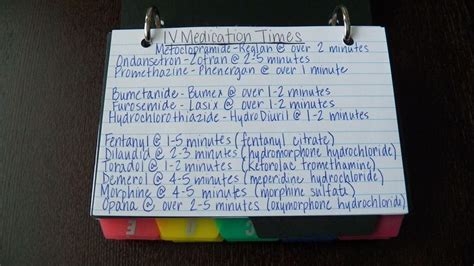 IV Medication Times
Metoclopramide - Reglan @ over 2 minutes
Ondansetron - Zofran @ 2-5 minutes
Promethazine - Phenergan @ over 1 minute
Bumetanide - Bumex @ over 1-2 minutes
Furosemide - Lasix @ over 1-2 minutes
Hydrochlorothiazide - HydroDiuril @ over 1-2 minutes
Fentanyl @ 1-5 minutes (fentanyl citrate)
Dilaudid @ 2-3 minutes (hydromorphone hydrochloride)
Toradol @ 1-2 minutes (ketorolac tromethamine)
Demerol @ 4-5 minutes (meperidine hydrochloride)
Morphine @ 4-5 minutes (morphine sulfate)
Opana @ over 2-5 minutes (oxymorphone hydrochloride)